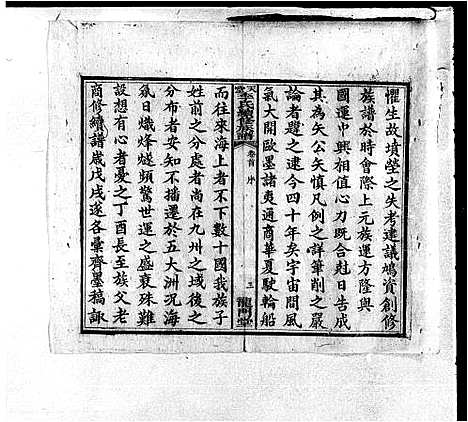 懼生故墳塋之失考建議鳩資創修
族譜於時會際上元族運方隆與
國運中興相值心力旣合尅日告成
其為矢公矢慎凡例之詳筆削之嚴
論者韙之逮今四十年矣宇宙間風
氣大開歐墨諸夷通商華夏駛輪船
李氏續修族譜
卷首 序
三 龍門堂
而往來海上者不下數十國我族子
姓前之分處者尚在九州之域後之
分布者安知不播遷於五大洲況海
氛日熾烽燧頻驚世運之盛衰殊難
設想有心者憂之丁酉長至族父老
商修續譜歲戊戌遂各彙齊墨稿諏